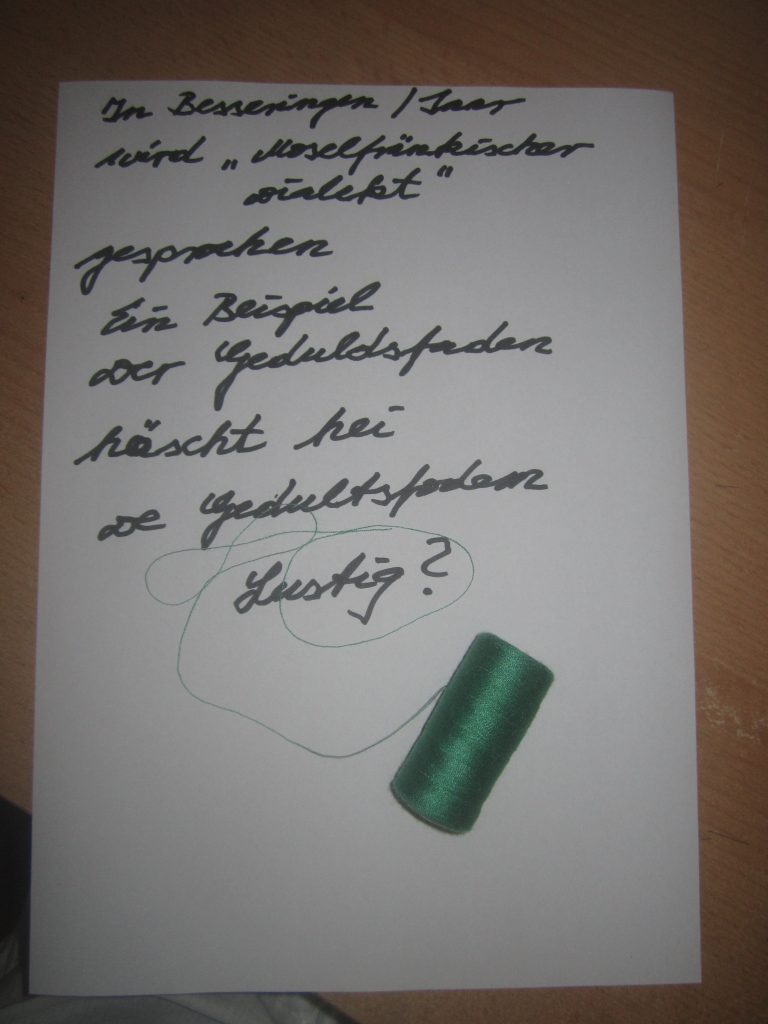 In Besseringen / Saar
wird „Moselfränkischer
Dialekt"
gesprochen
Ein Beispiel
Der Geduldsfaden
häscht hei
De Gedultsfodem
Lustig?